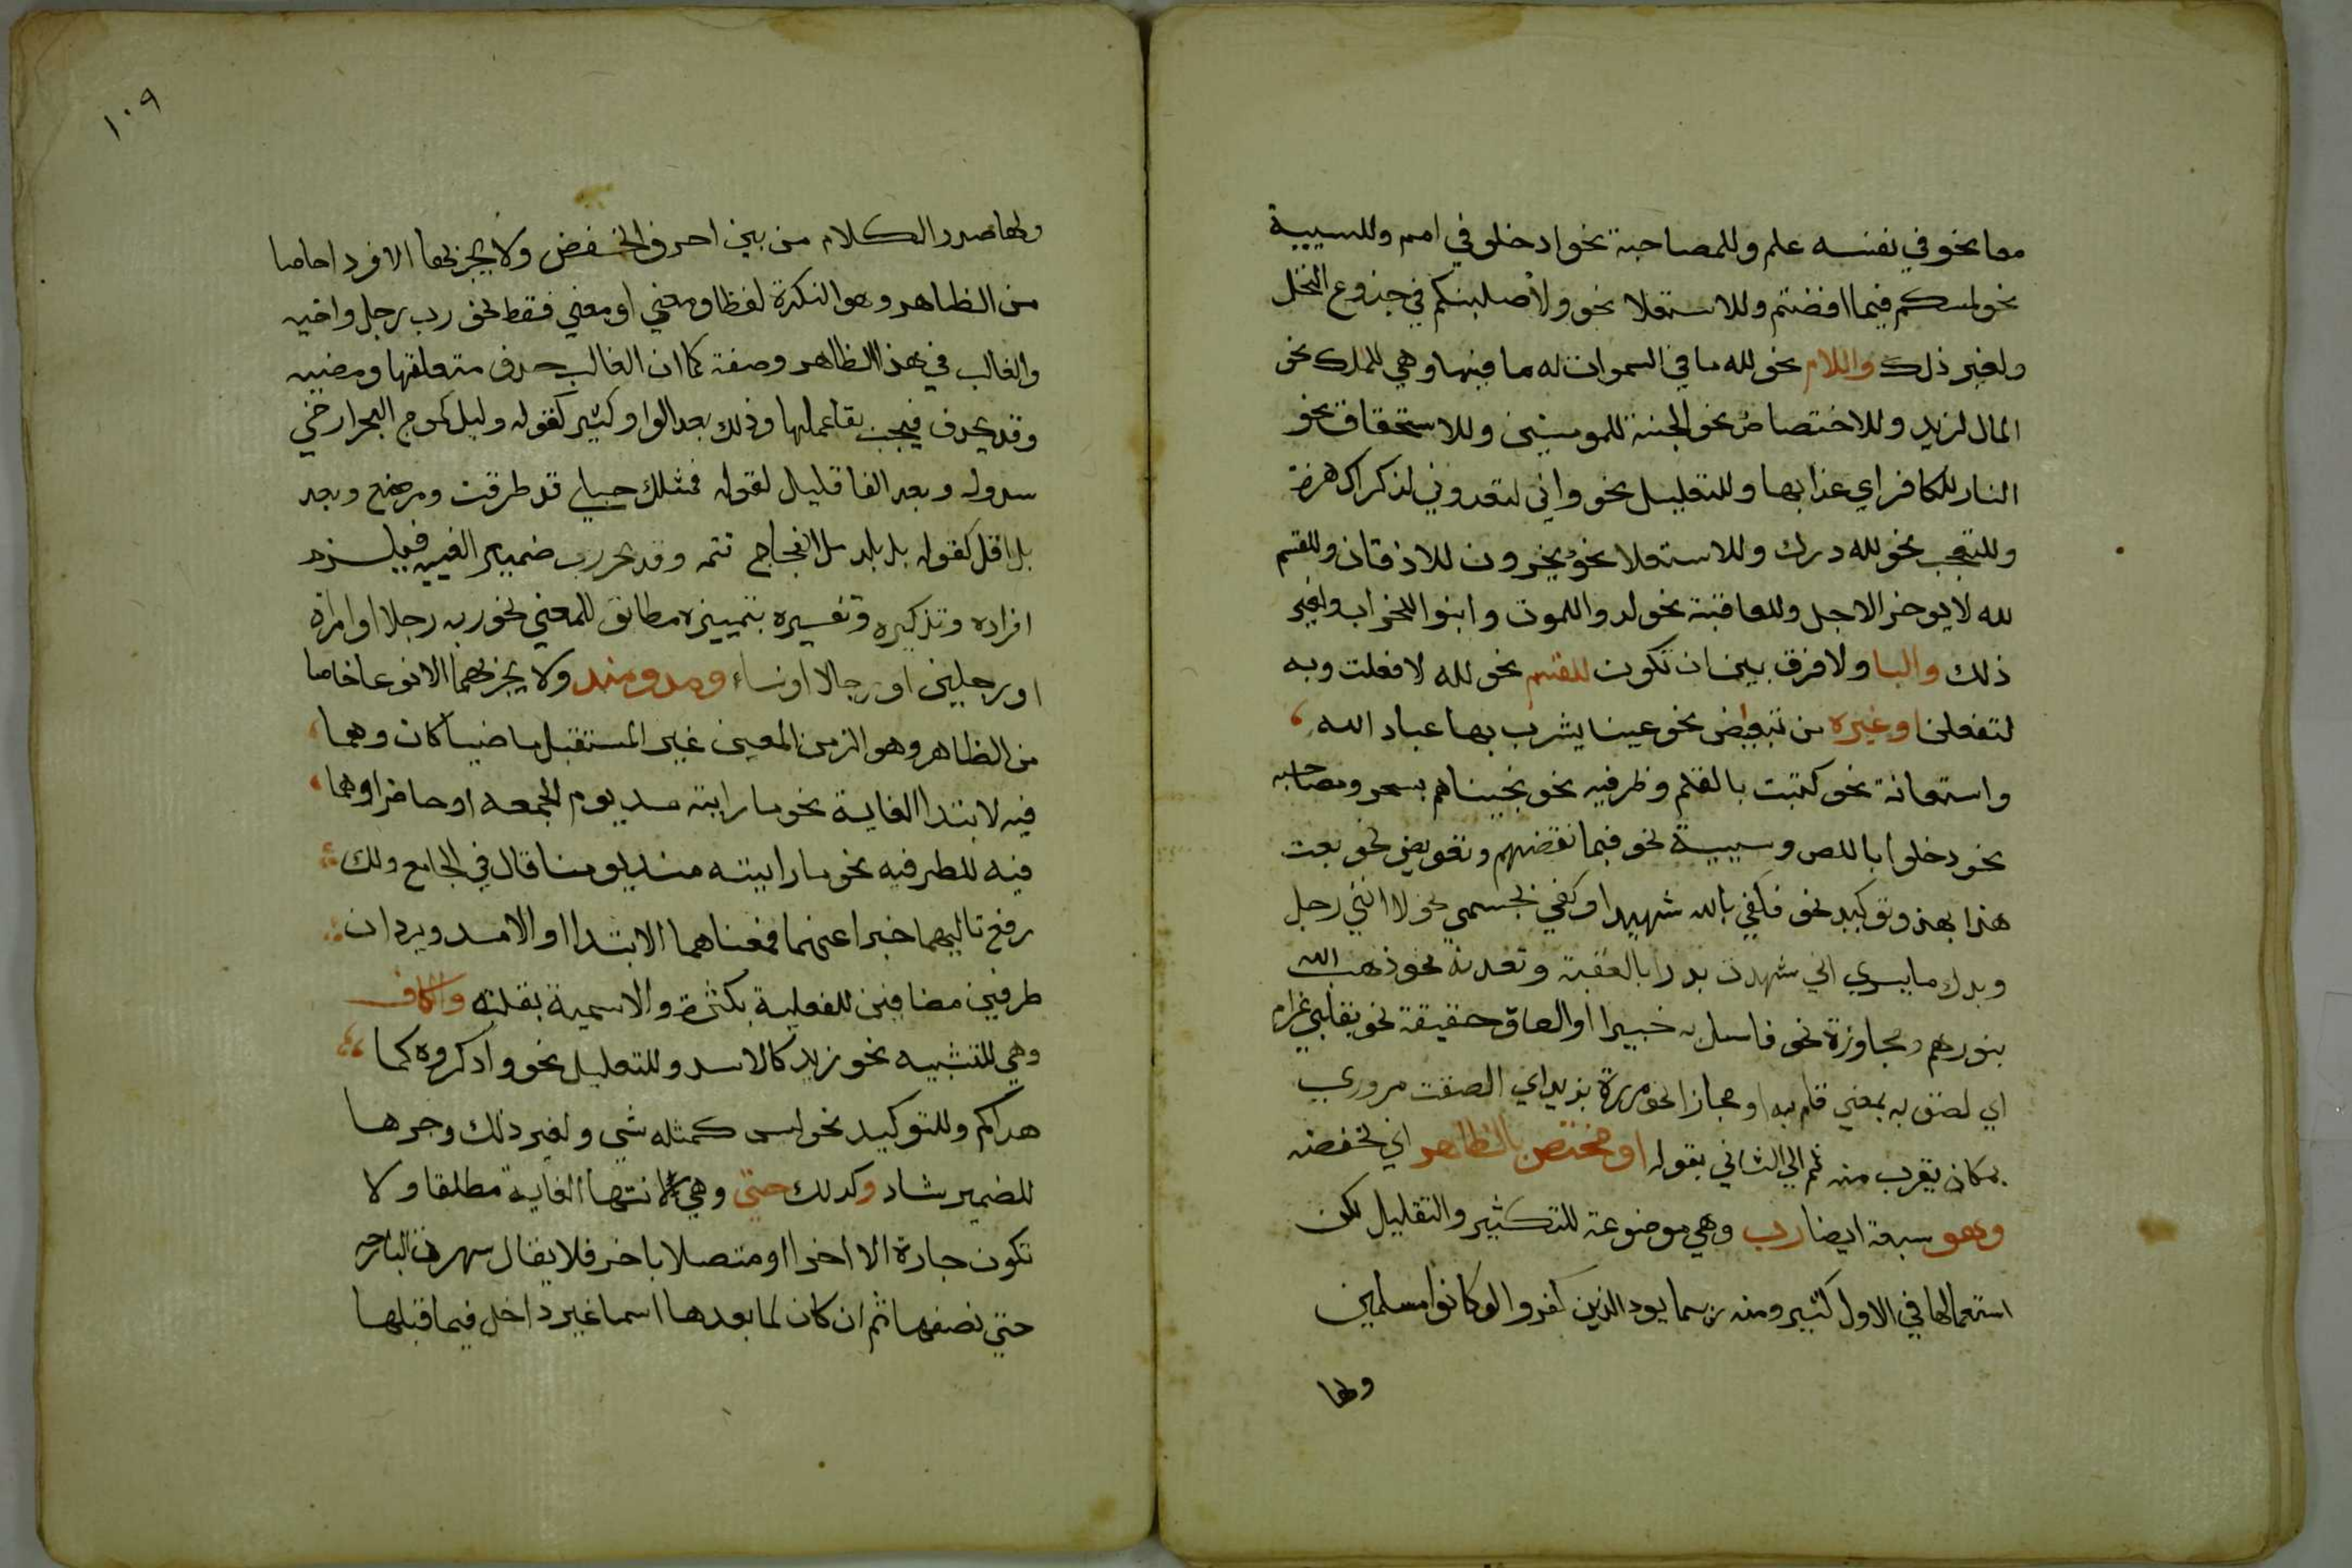 معا نحو في نفسه علم وللمصاحبة نحو ادخلو في امم وللسببية
نحو لمسكم فيما افضتم وللاستعلا نحو ولأصلبنكم في جذوع النخل
ولغير ذلك واللام نحو لله ما في السموات له ما فيها وهي للملك نحو
المال لزيد وللاختصاص نحو الجنة للمومنين وللاستحقاق نحو
النار للكافر اي عذابها وللتعليل نحو واني لتعروني لذكراك هزة
وللتعجب نحو لله درك وللاستعلا نحو يخرون للاذقان وللقسم
لله لا يوخر الاجل وللعاقبة نحو لدوا للموت وابنوا للخراب ولغير
ذلك والبا ولا فرق بين ان تكون للقسم نحو لله لا فعلت وبه
لتفعلن او غيره من تبعيض نحو عينا يشرب بها عباد الله
واستعانة نحو كتبت بالقلم وظرفيه نحو نجيناهم بسحر ومصاحبه
نحو دخلوا بالـ وسببية نحو فبما نقضهم وتعويض نحو بعت
هذا بهذ وتوكيد نحو فكفي بالله شهيدا وكفي بجسمي نحولا انني رجل
وبدل ما يسري اني شهدت بدرا بالعقبة وتعدية نحو ذهب الله
بنورهم ومجاوزة نحو فاسل به خبيرا او الصاق حقيقة نحو بقلبي غرام
اي لصق به بمعني قام به او مجازا نحو مررة بزيد اي الصقت مروري
بمكان يقرب منه ثم الي الثاني بقوله او مختص بالظاهر اي بخفضه
وهو سبعة ايضا رب وهي موضوعة للتكثير والتقليل لكن
استعمالها في الاول كثير ومنه ربما يود الذين كفروا لو كانوا مسلمين
ولها
١٠٩
ولها صدر الكلام من بين احرف الخفض ولا يجر بها الا فرد اخاصا
من الظاهر وهو النكرة لفظا ومعني او معني فقط نحو رب رجل واخيه
والغالب في هذا الظاهر وصفه كما ان الغالب حدف متعلقها ومضيه
وقد يحدف فيجب بقا عملها وذلك بعد الواو كثير كقوله وليل كموج البحر ارخي
سدوله وبعد الفا قليل لقوله فمثلك حبلي قد طرقت ومرضع وبعد
بل اقل كقوله بل بلد مل الفجاج تتمه وقد يجر رب ضمير الغيبه فيلزم
افراده وتذكيره وتفسيره بتمييزه مطابق للمعني نحو ربه رجلا او امراة
او رجلين او رجالا او نساء ومد ومند ولا يجر بهما الا نوعا خاصا
من الظاهر وهو الزمن المعين غير المستقبل ماضيا كان وهما
فيه لابتدا الغاية نحو ما رايته مد يوم الجمعه او حاضرا وهما
فيه للظرفيه نحو ما رايته منذ يومنا قال في الجامع ولك
رفع تاليهما خبرا عنهما فمعناهما الابتدا او الامد ويردان
ظرفين مضافين للفعلية بكثرة والاسمية بقلة والكاف
وهي للتشبيه نحو زيد كالاسد وللتعليل نحو وادكروه كما
هداكم وللتوكيد نحو ليس كمثله شي ولغير ذلك وجرها
للضمير شاد وكدلك حتي وهي لانتها الغاية مطلقا ولا
تكون جارة الا اخرا او متصلا باخر فلا يقال سهرت البارحه
حتي نصفها ثم ان كان لما بعدها اسما غير داخل فيما قبلها